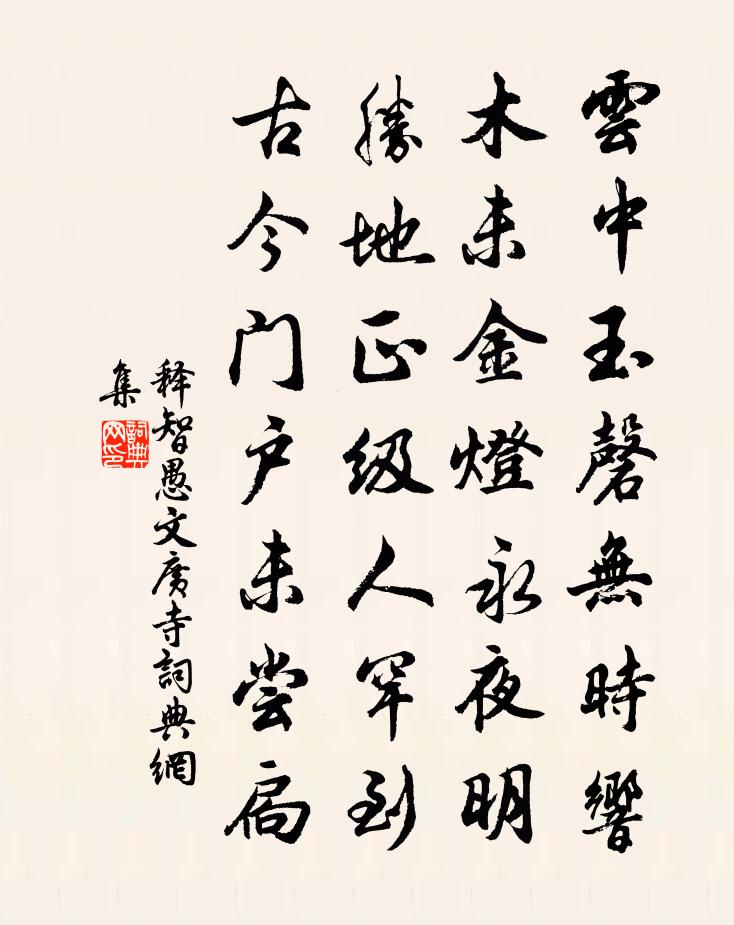 雲中玉磬無時響
木末金燈永夜明
勝地正级人罕到
古今门户未尝扃
释智愚文廣寺詞典網
集
詞典
网印